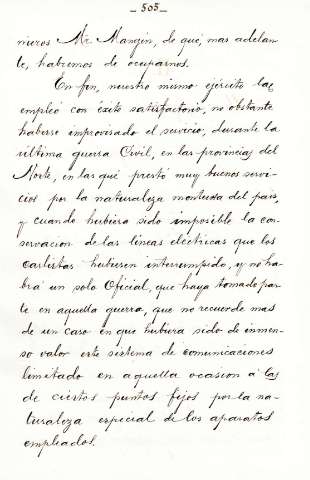 - 505 -
nieros Mr Mangin, de que, mas adelan-
te, habremos de ocuparnos.
En fin, nuestro mismo ejército las
empleó con éxito satisfactorio, no obstante
haberse improvisado el servicio, durante la
última guerra Civil, en las provincias del
Norte, en las que prestó muy buenos servi-
cios por la naturaleza montuosa del pais,
y cuando hubiera sido imposible la con-
servacion de las lineas eléctricas que los
carlistas hubiesen interrumpido, y no ha-
brá un solo Oficial, que haya tomado par-
te en aquella guerra, que no recuerde mas
de un caso en que hubiera sido de inmen-
so valor este sistema de comunicaciones
limitado en aquella ocasion á las
de ciertos puntos fijos por la na-
turaleza especial de los aparatos
empleados.